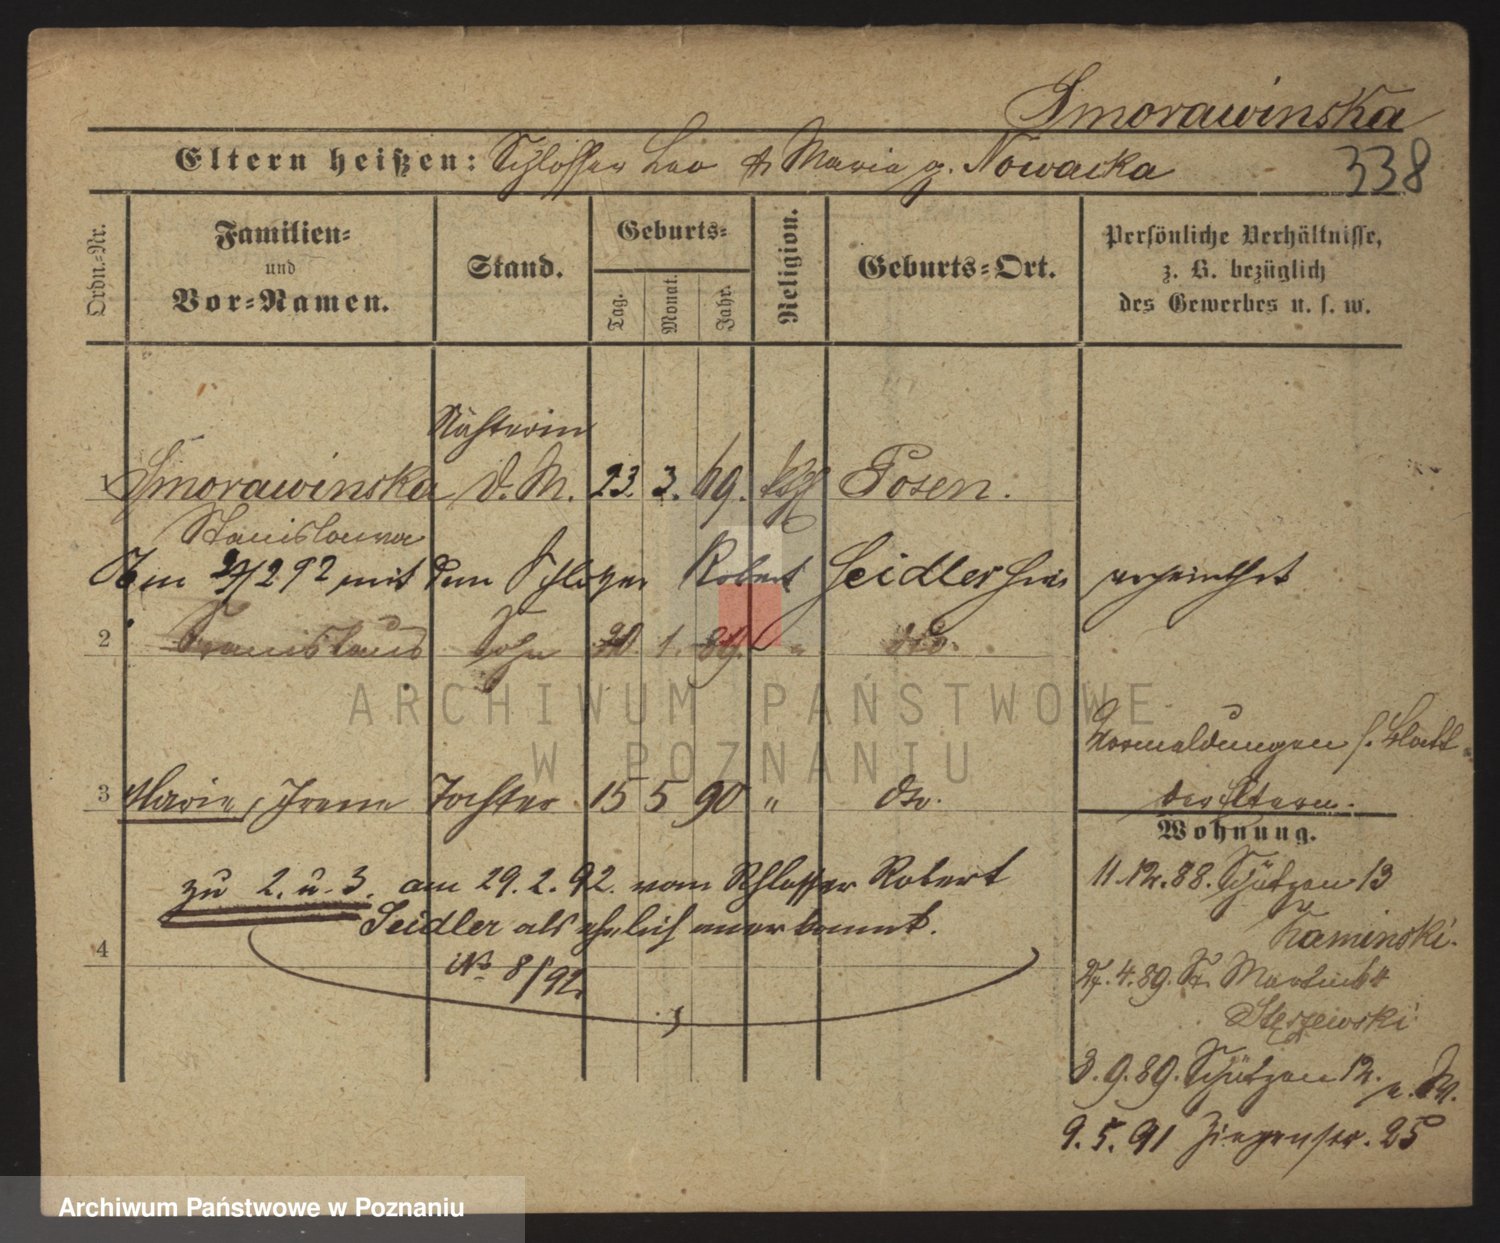 Smorawinska
Eltern heißen: Schlosser Leo & Maria g. Nowacka
338
Ordn.-Nr.
Familien-
und
Vor-Namen.
Stand.
Geburts-
Tag.
Monat.
Jahr.
Religion.
Geburts-Ort.
Persönliche Verhältnisse,
z. B. bezüglich
des Gewerbes u. s. w.
Nähterin
1 Smorawinska d. M. 23. 3. 69. kth Posen.
Stanislawa
Am 29/2 92 mit dem Schlosser Robert Seidler hier verheirathet
2 Stanislaus Sohn 20. 1. 89. " dto.
ARCHIWUM PAŃSTWOWE
W POZNANIU
Vormeldungen s. Blatt
der Eltern.
3 Marie, Irene Tochter 15 5 90 " dto.
Wohnung.
zu 2. u. 3. am 29. 2. 92. vom Schlosser Robert
Seidler als ehelich anerkannt.
4 No 8/92.
11.12.88. Schützen 13
Kaminski.
27.4.89. St. Martin 64
Stęszewski
3.9.89. Schützen 12.
9.5.91 Ziegenstr. 25
Archiwum Państwowe w Poznaniu